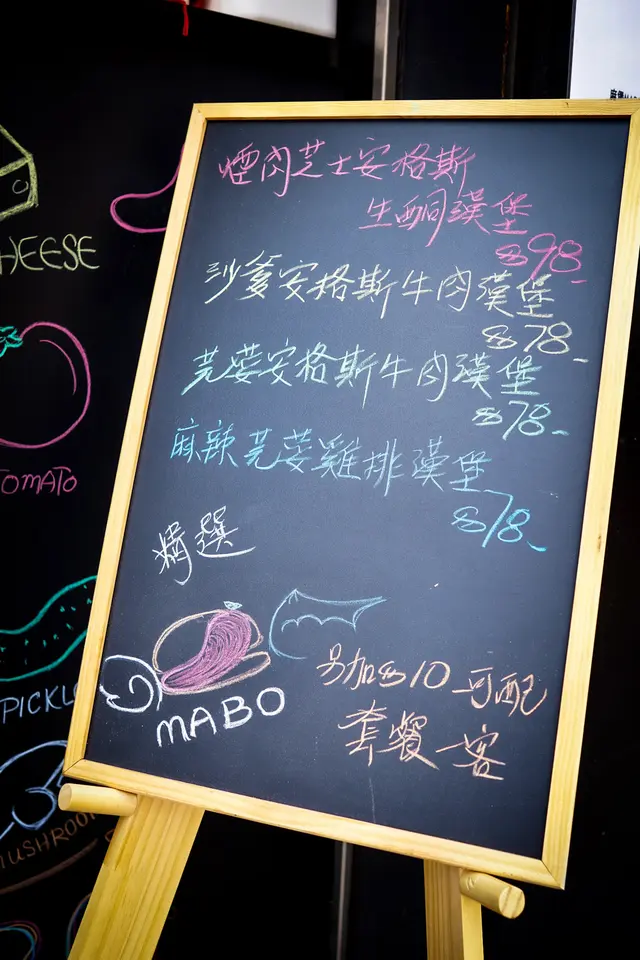 煙肉芝士安格斯
生酮漢堡
$98.-
沙爹安格斯牛肉漢堡
$78.-
芫荽安格斯牛肉漢堡
$78.-
麻辣芫荽雞排漢堡
$78.-
精選
MABO
另加$10可配
套餐一客
HEESE
TOMATO
PICKL
USHROO